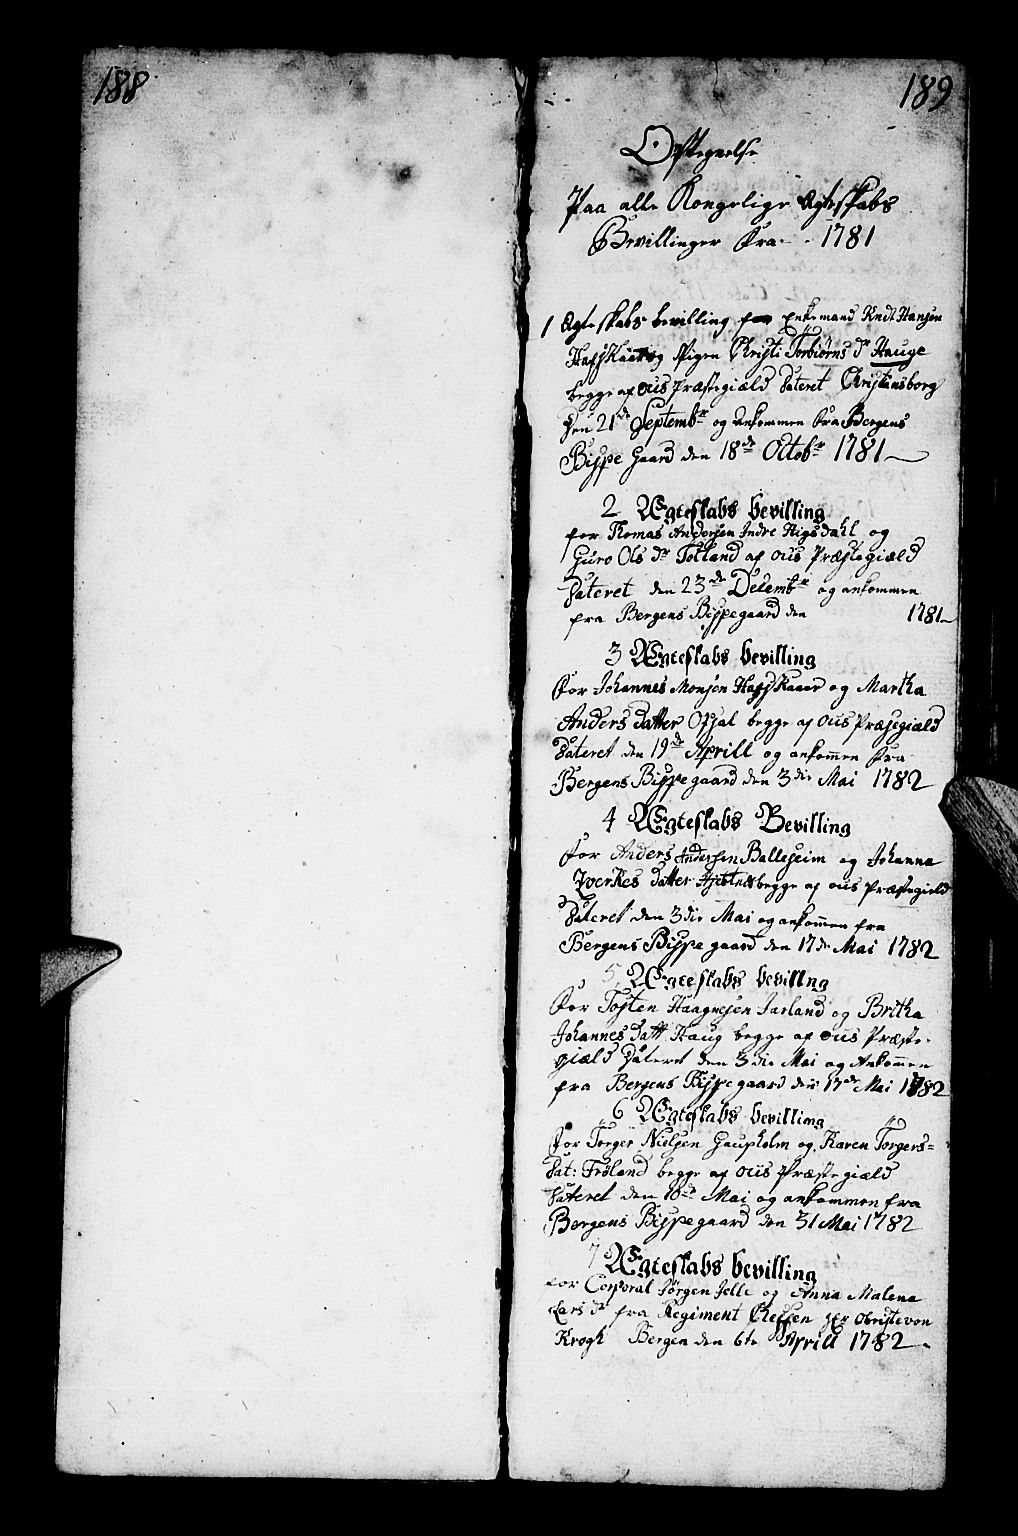 188
189
Optegnelse
Paa alle Kongelige Ægteskabs
Bevillinger Fra 1781
1 Ægteskabs bevilling for Enkemand Kndt Hansøn
HafsKaar og Pigen Christi Torbiørns Dr Hauge
begge af Ous Præstegiæld Dateret Christiansborg
Den 21de Septembr og ankommen Fra Bergens
Bispe Gaard den 18de Octobr 1781
2 Ægteskabs bevilling
for Thomas Andersen Indre Aigsdahl og
Guro Ols Dr Tolland af Ous Præstegiæld
Dateret den 23de Decembr og ankommen
fra Bergens Bispegaard den 1781
3 Ægteskabs bevilling
For Johannes Monsen HafsKaaer og Martha
Anders Datter Opsal begge af Ous Præsegiæld
Dateret den 19de Aprill og ankommen Fra
Bergens Bispegaard den 3die Mai 1782
4 Ægteskabs Bevilling
For Anders Andersen Balleheim og Johanna
Zverkes Datter begge af ous Præstegield
Dateret den 3die Mai og ankommen fra
Bergens Bispe gaard den 17de Mai 1782
5 Ægteskabs bevillng
For Tosten Haagnesen Jarland og Britha
Johannes Datt Haug begge af Ous Præste-
giæld Dateret den 3die Mai og Ankommen
fra Bergens Bispegaard den 17de Mai 1782
6 Ægteskabs bevilling
For Törger Nielsen Gaupholm og Karen Törgers=
Dat: Frøland begge af Ous Præstegiæld
Dateret den 10de Mai og ankommen fra
Bergens Bispegaard den 31 Mai 1782
7 Ægteskabs bevilling
for Corporal Jørgen Jelle og Anna Malena
Lars Dr fra Regiment Cheffen Hr Obriste von
Krogh Bergen den 6te Aprill 1782